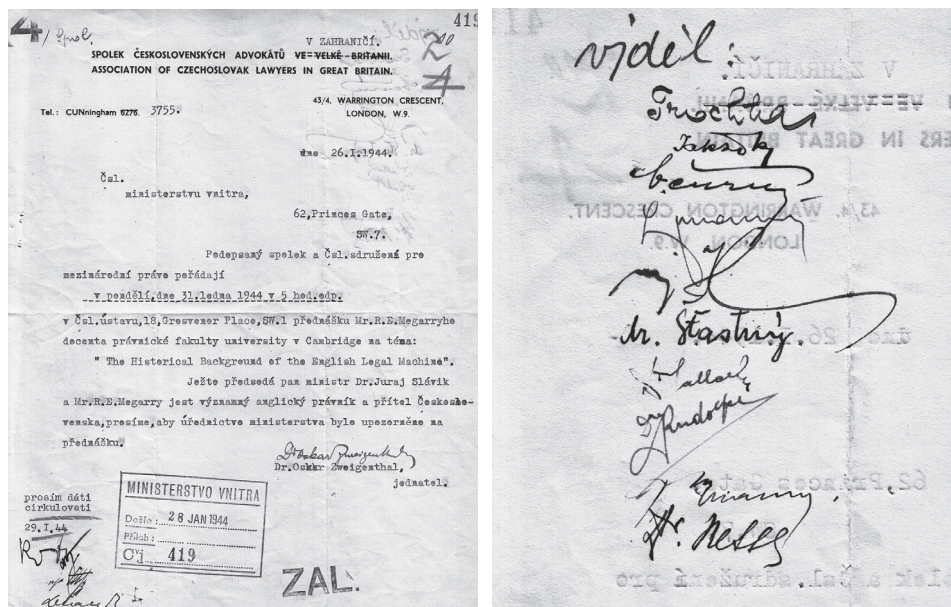 4/
419
V ZAHRANIČÍ.
SPOLEK ČESKOSLOVENSKÝCH ADVOKÁTŮ VE VELKÉ BRITANII.
ASSOCIATION OF CZECHOSLOVAK LAWYERS IN GREAT BRITAIN.
43/4, WARRINGTON CRESCENT,
Tel.: CUNningham 6276. 3755.
LONDON, W.9.
dne 26.I.1944.
Čsl.
ministerstvu vnitra,
62,Princes Gate,
SW.7.
Podepsaný spolek a Čsl.sdružení pro
mezinárodní právo pořádají
v pondělí,dne 31.ledna 1944 v 5 hod.odp.
v Čsl.ústavu,18,Grosvenor Place,SW.1 přednášku Mr.R.E.Megarryho
docenta právnické fakulty university v Cambridge na téma:
" The Historical Background of the English Legal Machine".
Ježto předsedá pan ministr Dr.Juraj Slávik
a Mr.R.E.Megarry jest význačný anglický právník a přítel Českoslo-
venska,prosíme,aby úřednictvo ministerstva bylo upozorněno na
přednášku.
Dr.Oskar Zweigenthal
Dr.Oskar Zweigenthal,
jednatel.
prosím dáti
cirkulovati
29.I.44
MINISTERSTVO VNITRA
Došlo: 28 JAN 1944
Příloh:
Čj. 419
ZAL.
viděl:
Trochta
Dr. Šťastný.
Dr Rudolfi